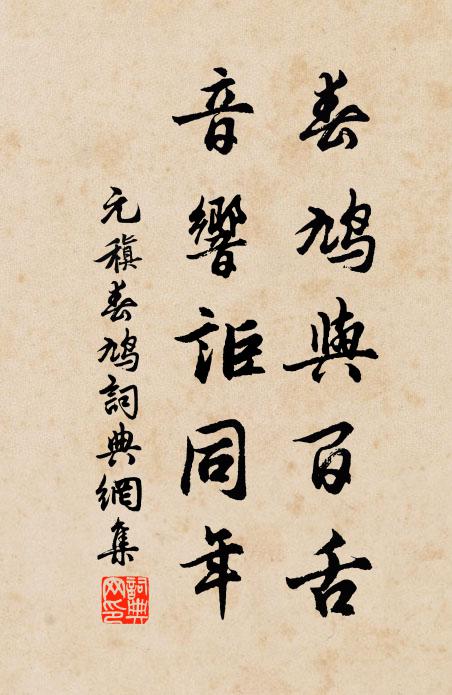 春鳩與百舌
音響詎同年
元稹春鳩詞典網集
詞典